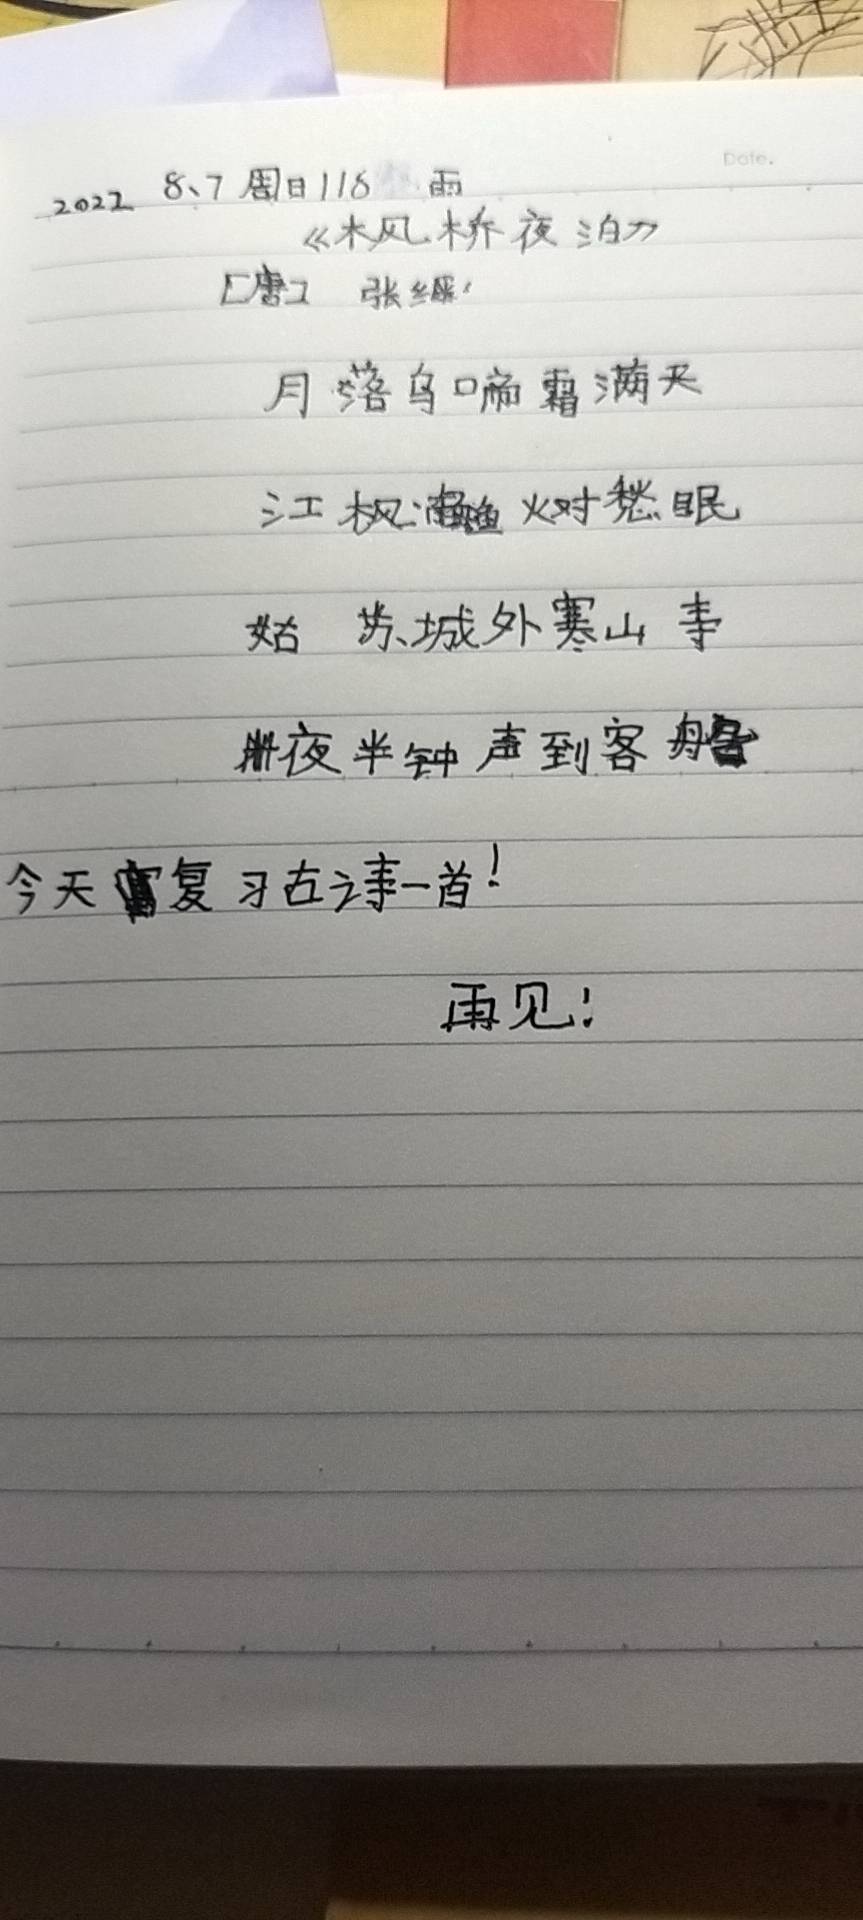 Date.
2022 8、7 周日118 雨
《枫桥夜泊》
[唐] 张继
月落乌啼霜满天
江枫渔火对愁眠
姑苏城外寒山寺
夜半钟声到客船
今天复习古诗一首!
再见!